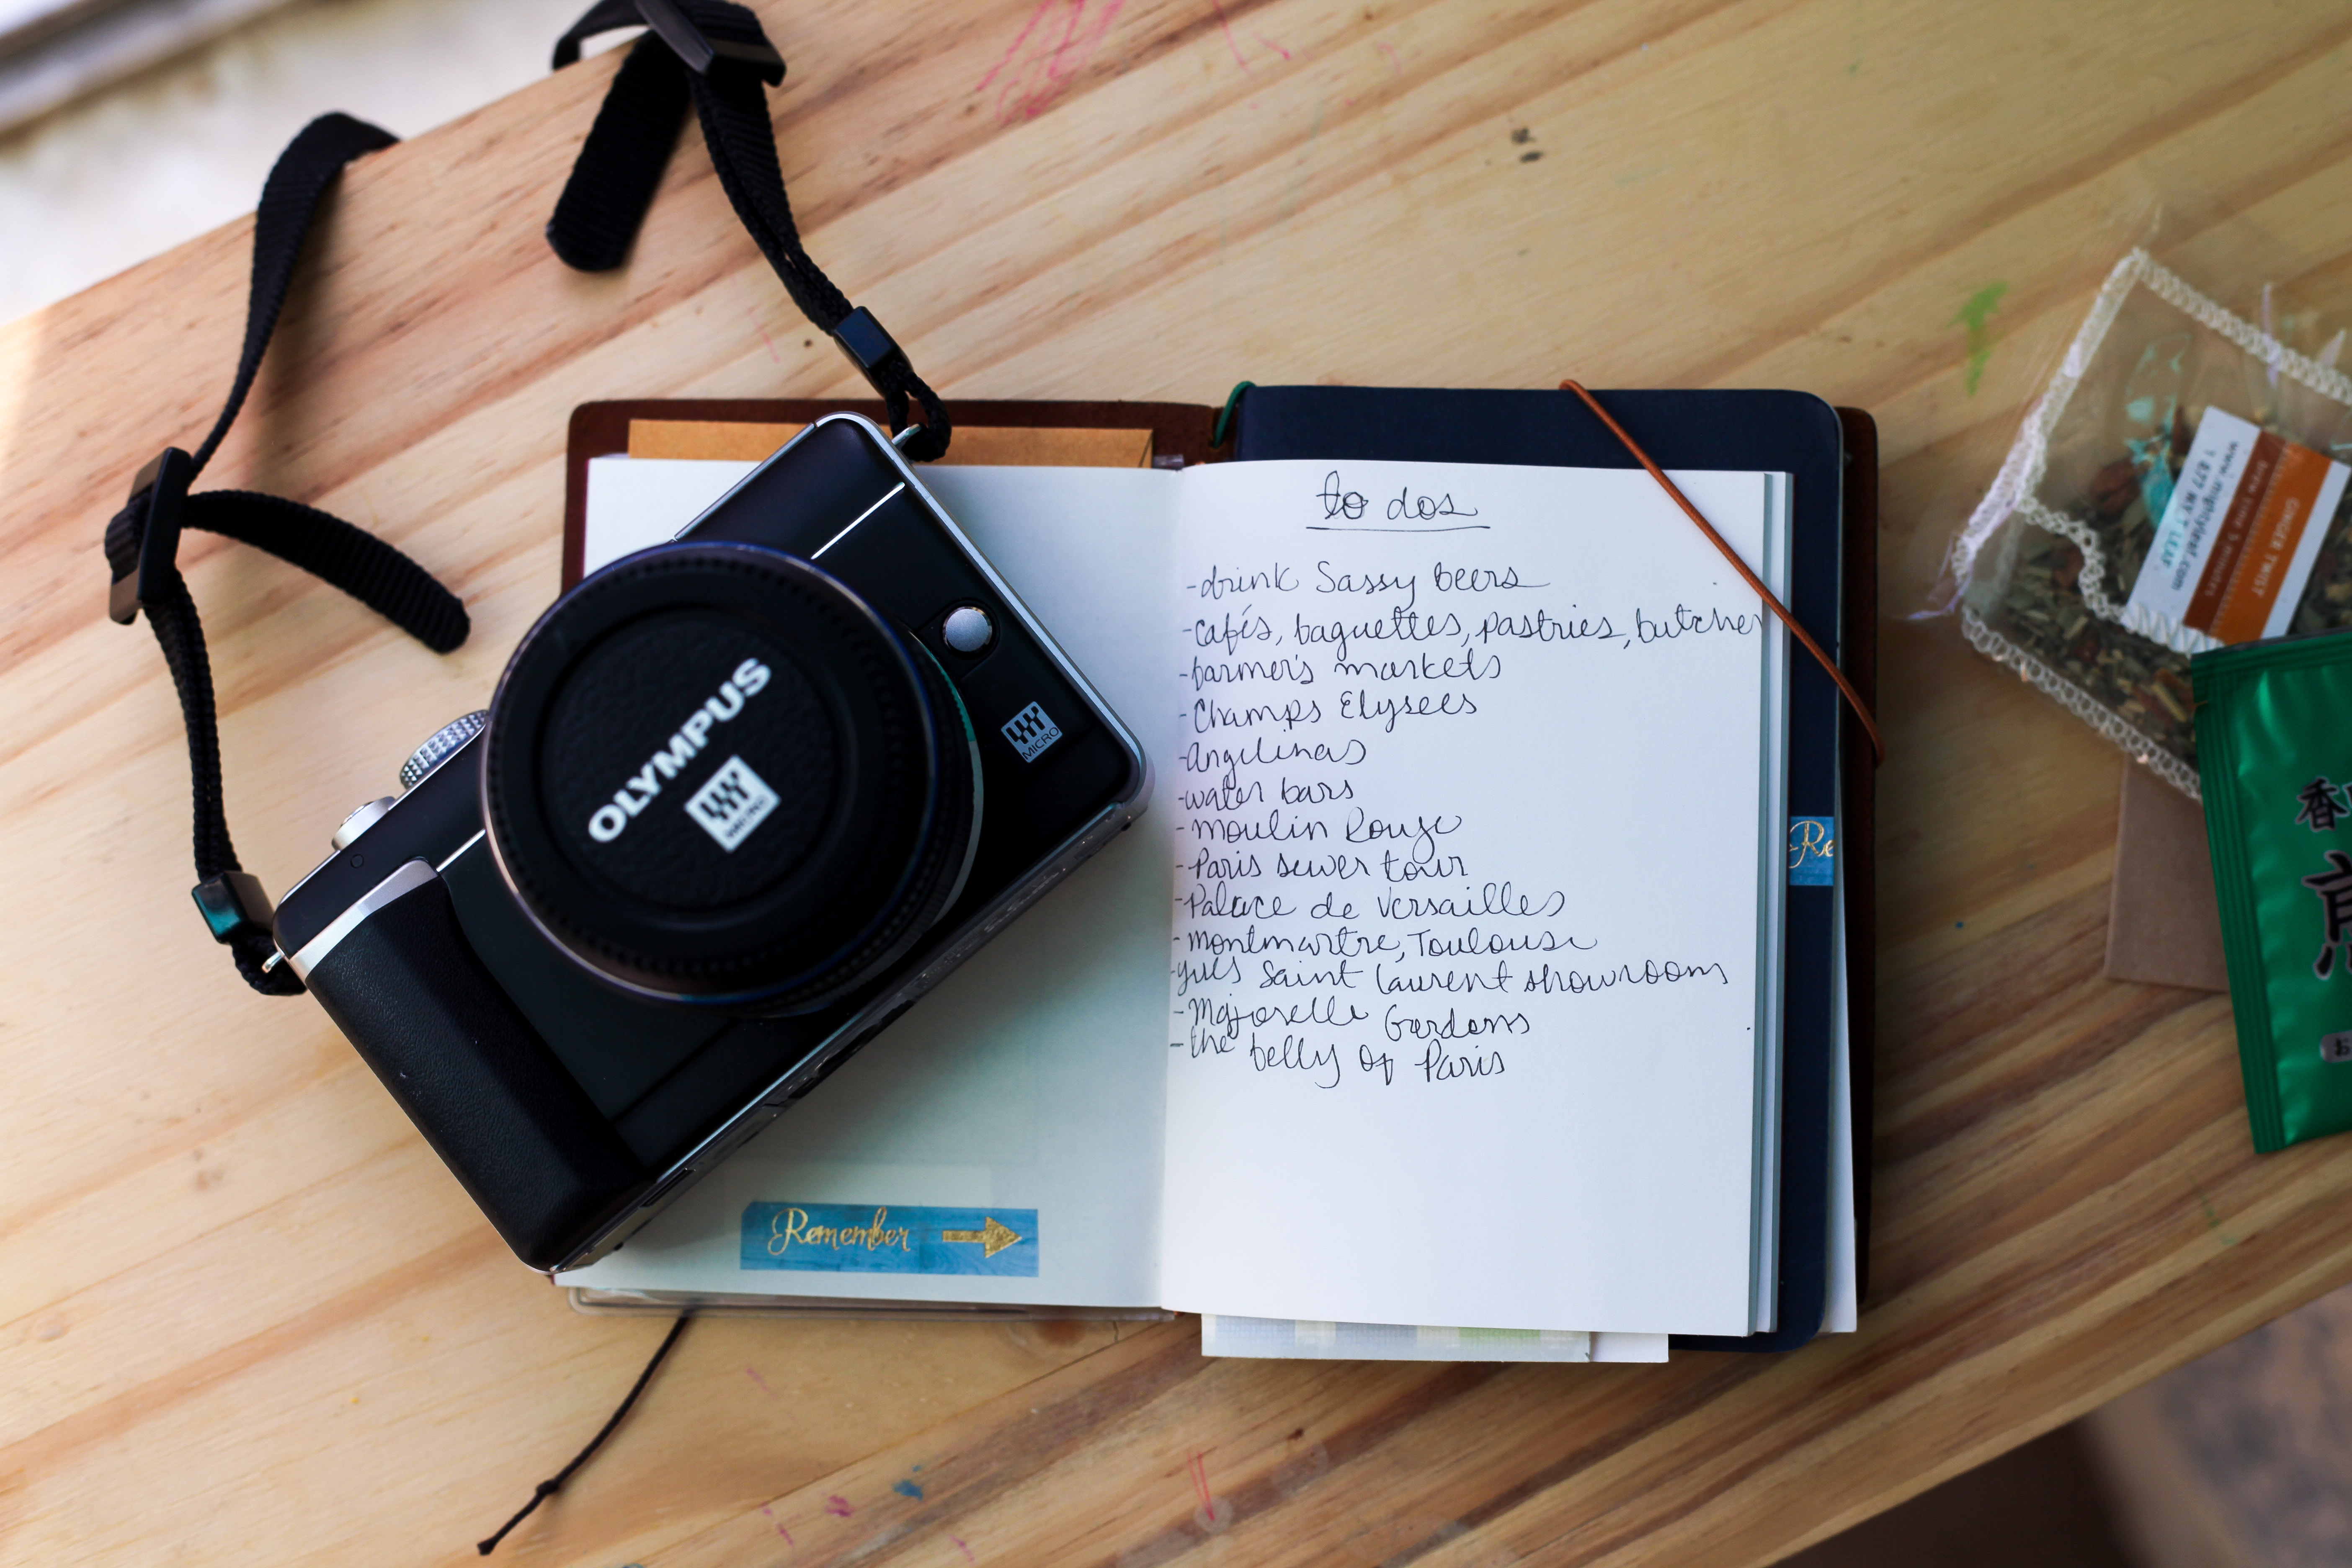 OLYMPUS
MICRO
to dos
-drink Sassy beers
-cafés, baguettes, pastries, butcher
-farmer's markets
-Champs Elysees
-Angelinas
-water bars
-Moulin Rouge
-Paris sewer tour
-Palace de Versailles
-Montmartre, Toulouse
-Yves Saint Laurent showrooms
-Majorelle Gardens
-the belly of Paris
Remember
Re
GINGER TWIST
brew time 5 minutes
www.mightyleaf.com
1.877.MY.T.LEAF
香